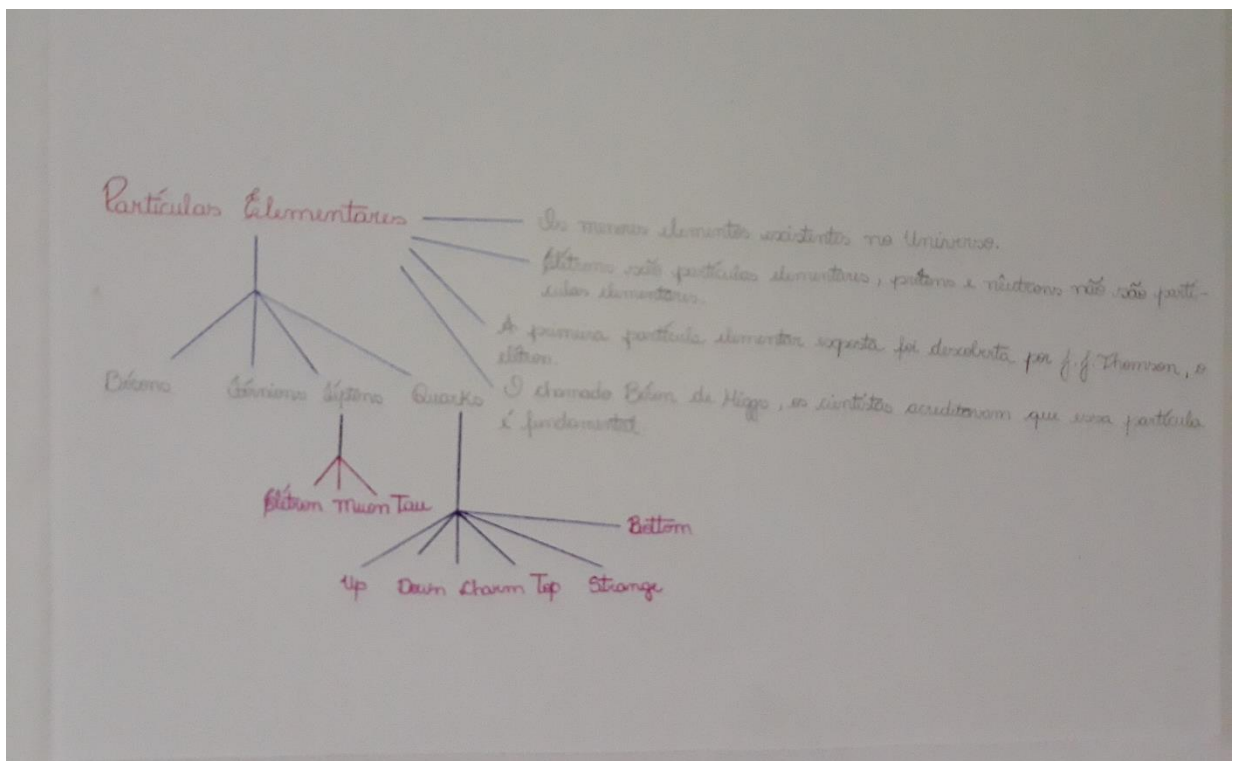 Partículas Elementares
Os menores elementos existentes no Universo.
Elétrons são partículas elementares, prótons e nêutrons não são partí-
culas elementares.
A primeira partícula elementar exposta foi descoberta por J.J. Thomson, o
elétron.
O chamado Bóson de Higgs, os cientistas acreditavam que essa partícula
é fundamental
Bósons Férmions Léptons Quarks
Elétron Muon Tau
Bottom
Up Down Charm Top Strange